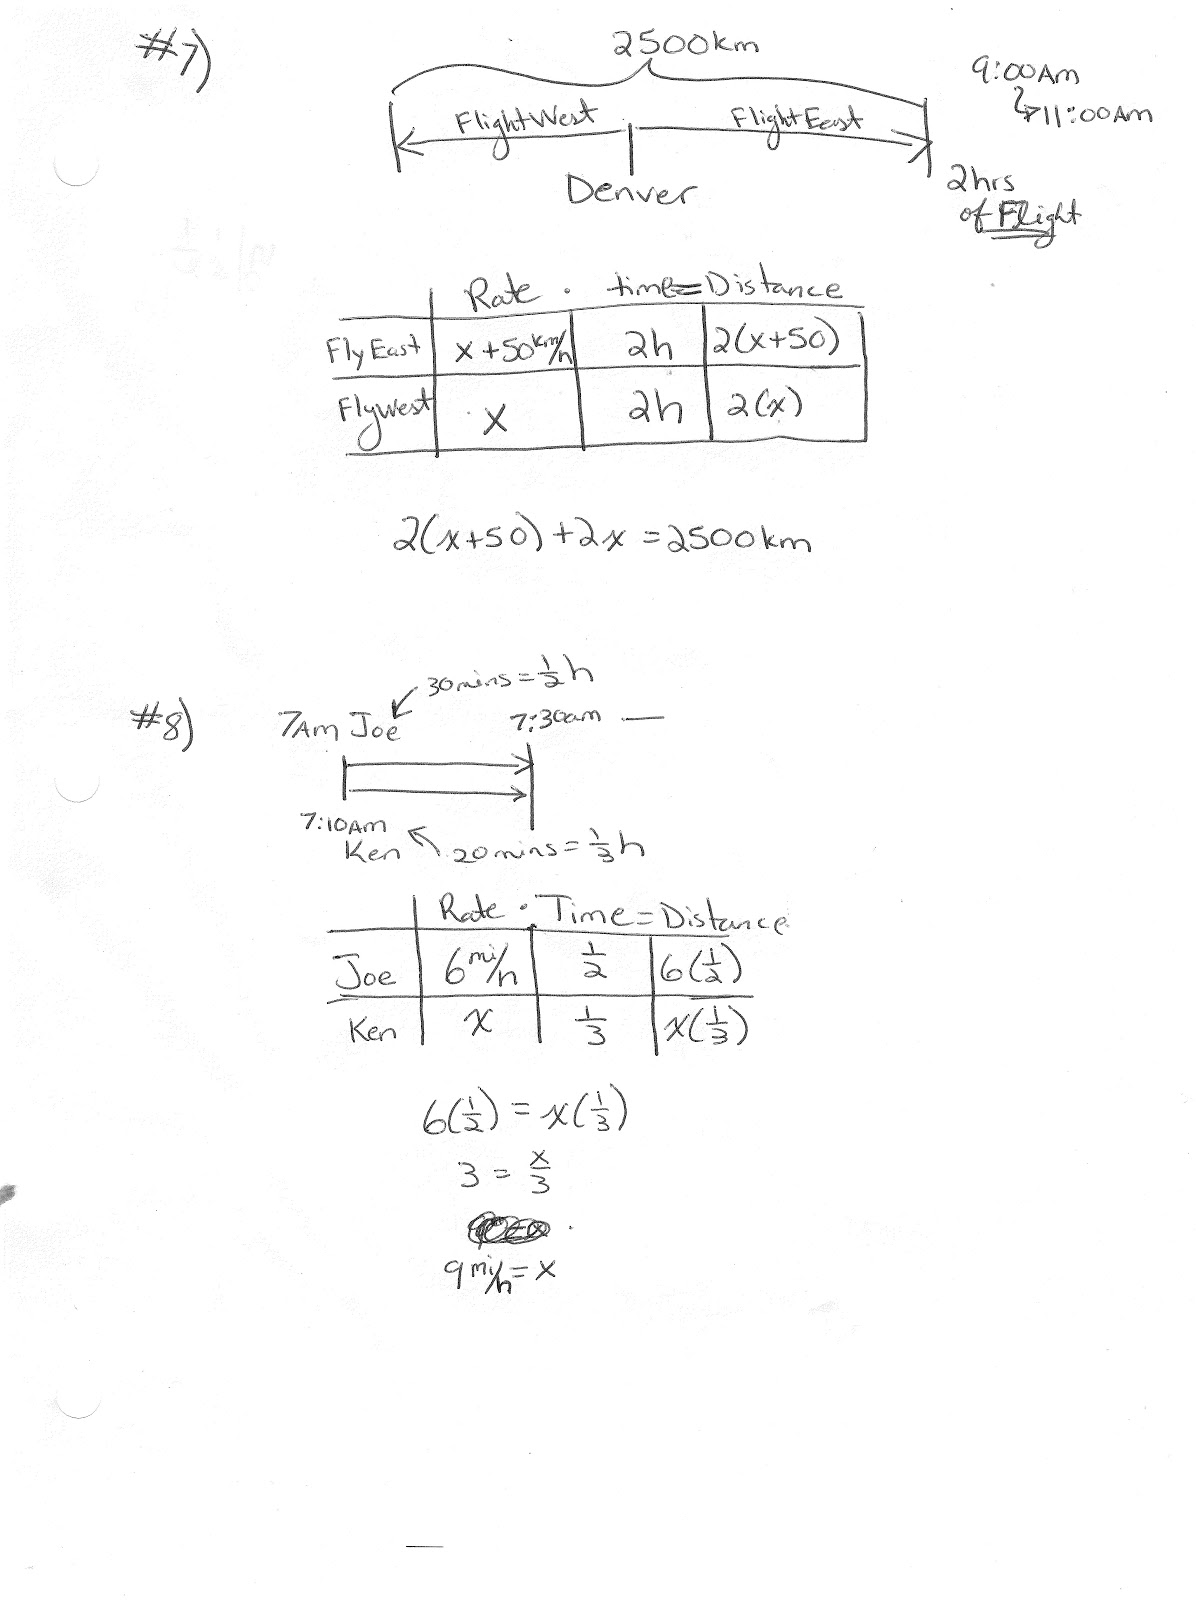 #7)
2500km
9:00Am
↳11:00Am
Flight West
Flight East
Denver
2hrs
of Flight
Rate · time = Distance
Fly East x+50 km/h 2h 2(x+50)
Fly West x 2h 2(x)
2(x+50)+2x=2500km
30 mins = 1/2 h
#8)
7Am Joe
7:30am —
7:10Am
Ken
20 mins = 1/3 h
Rate · Time = Distance
Joe 6 mi/h 1/2 6(1/2)
Ken x 1/3 x(1/3)
6(1/2) = x(1/3)
3 = x/3
9 mi/h = x